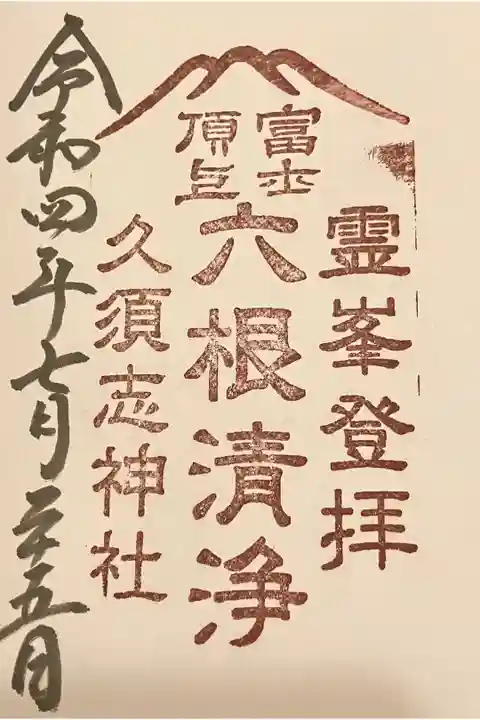 霊峯登拝
富士
頂上
六根清浄
久須志神社
令和四年七月二十五日